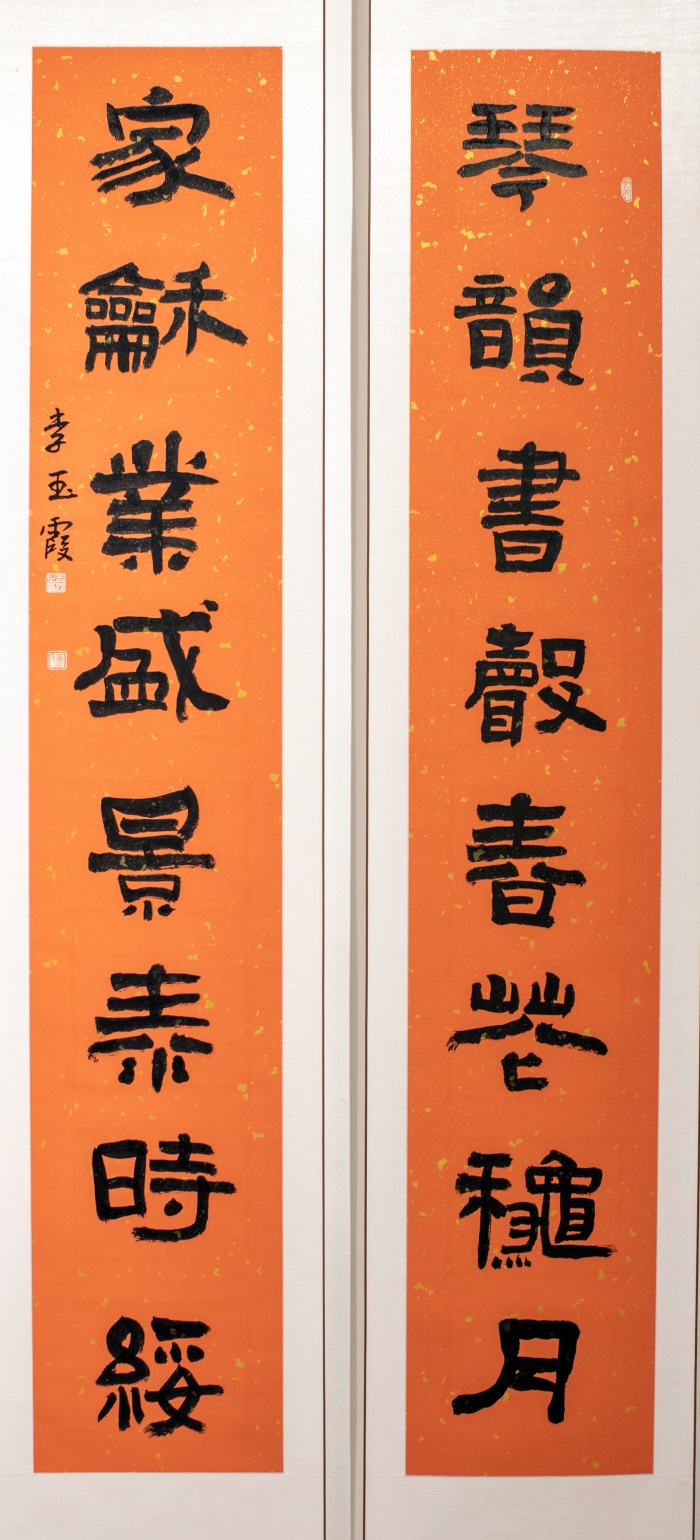 琴韻書聲春花龝月
家龢業盛景泰時綏
李玉霞